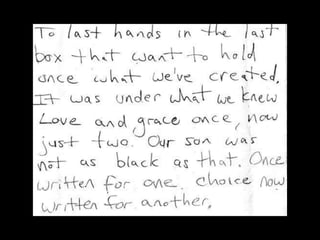 To last hands in the last
box that want to hold
once what we've created.
It was under what we knew
Love and grace once, now
just two. Our son was
not as black as that. Once
written for one choice now
written for another.